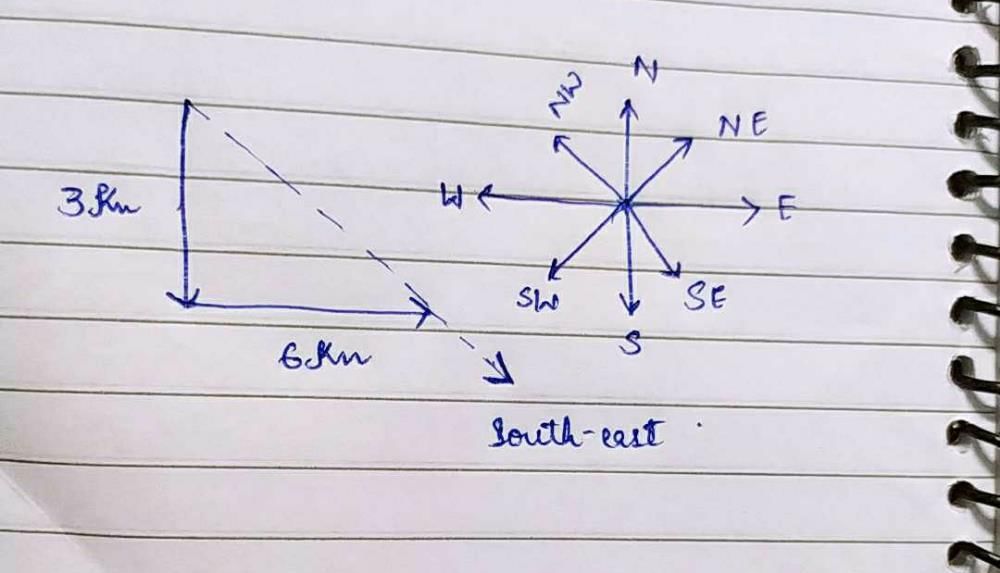 N
NW
NE
3 Km
W
E
SW
SE
S
6 Km
South-east